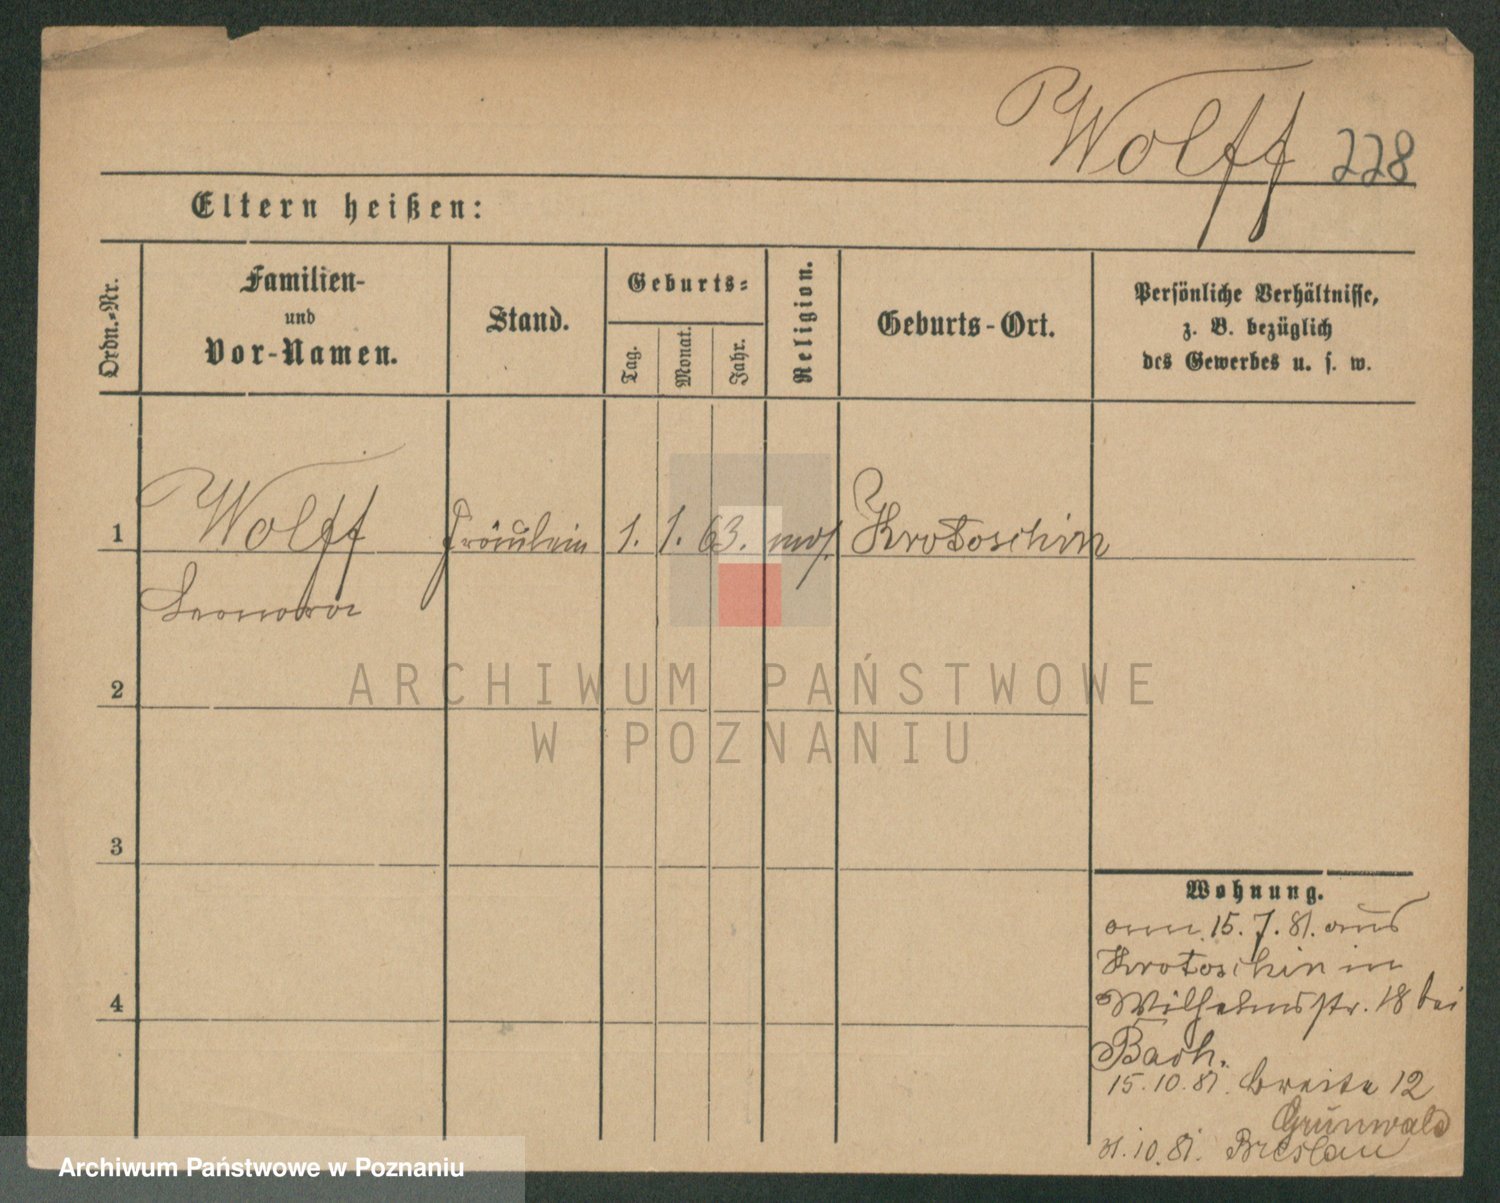 Wolff 228
Eltern heißen:
Ordn.-Nr.
Familien-
und
Vor-Namen.
Stand.
Geburts-
Tag.
Monat.
Jahr.
Religion.
Geburts-Ort.
Persönliche Verhältnisse,
z. B. bezüglich
des Gewerbes u. s. w.
1 Wolff Fräulein 1. 1. 63. mos. Krotoschin
Leonora
ARCHIWUM PAŃSTWOWE
W POZNANIU
2
3
4
Wohnung.
am 15. 7. 81. aus
Krotoschin in
Wilhelmsstr. 18 bei
Bach.
15. 10. 81. Breite 12
Grünwald
31. 10. 81. Breslau
Archiwum Państwowe w Poznaniu